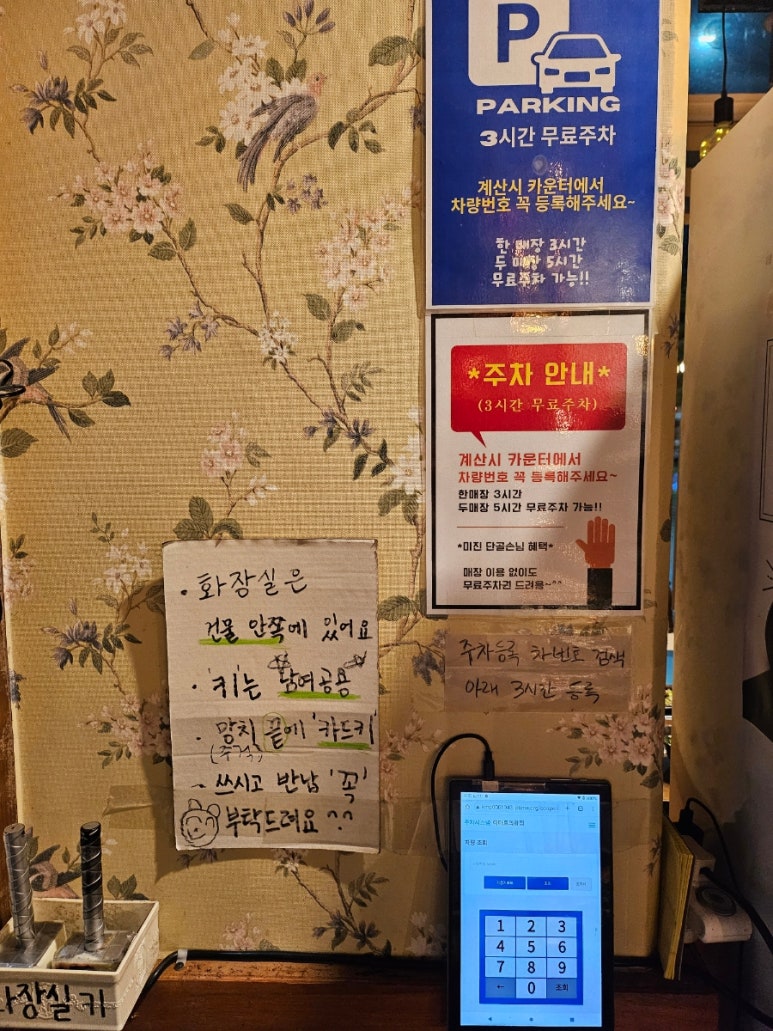 P
PARKING
3시간 무료주차
계산시 카운터에서
차량번호 꼭 등록해주세요~
한 매장 3시간
두 매장 5시간
무료주차 가능!!
*주차 안내*
(3시간 무료주차)
계산시 카운터에서
차량번호 꼭 등록해주세요~
한매장 3시간
두매장 5시간 무료주차 가능!!
*미진 단골손님 혜택*
매장 이용 없이도
무료주차권 드려욤~^^
• 화장실은
건물 안쪽에 있어요
• '키'는 남여공용
• 망치 끝에 '카드키'
• 쓰시고 반납 '꼭'
부탁드려요 ^^
주차등록 차번호 검색
아래 3시간 등록
차량 조회
1 2 3
4 5 6
7 8 9
← 0 조회
화장실 키